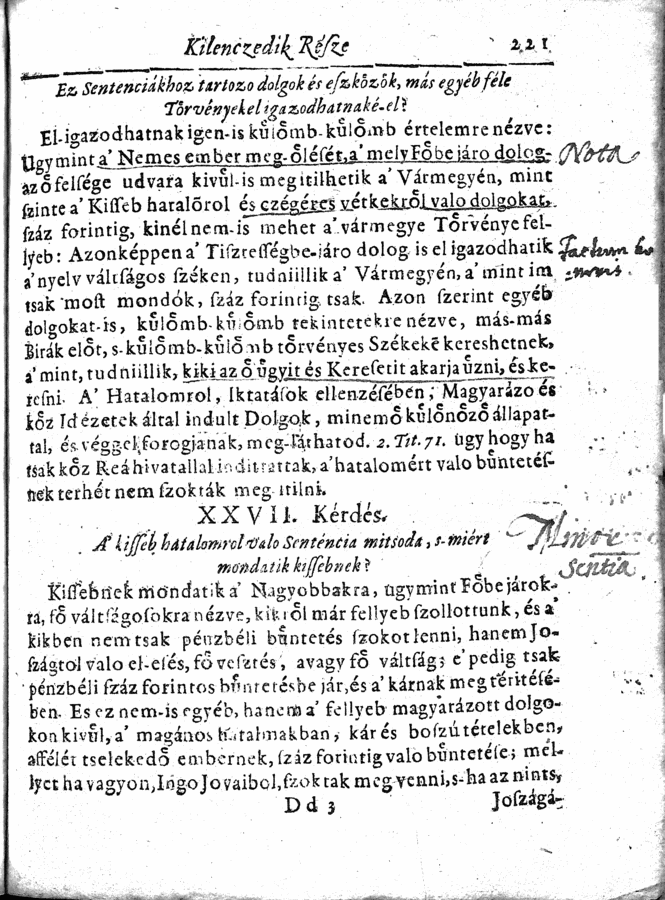 Kilenczedik Réſze 221
Ez Sentenciákhoz tartozo dolgok és eſzkőzők, más egyéb féle
Tőrvényekel igazodhatnaké-el?
El-igazodhatnak igen-is kůlőmb-kůlőmb értelemre nézve:
Ugy mint a' Nemes ember meg-őléſét, a' mely Főbe járo dolog- Nota
az ő felſége udvara kivůl-is meg itilhetik a' Vármegyén, mint
ſzinte a' Kiſſeb hatalőrol és czégéres vétkekről valo dolgokat,
ſzáz forintig, kinél nem-is mehet a' vármegye Tőrvénye fel-
lyeb: Azonképpen a' Tiſzteſſégbe-járo dolog is el igazodhatik
a' nyelv váltſágos ſzéken, tudniillik a' Vármegyén, a' mint im
tsak most mondók, ſzáz forintig tsak. Azon ſzerint egyéb
dolgokat-is, kůlőmb-kůlőmb tekintetekre nézve, más-más
Birák előt, s-kůlőmb-kůlőmb tőrvényes Székekē kereshetnek,
a' mint, tudniillik, ki ki az ő ůgyit és Kereſetit akarja ůzni, és ke-
reſni. A' Hatalomrol, Iktatáſok ellenzéſében, Magyarázo és
kőz Idézetek által indult Dolgok, minemő kůlőnőző állapat-
tal, és véggel forogjanak, meg-láthatod. 2. Tit. 71. ugy hogy ha
tsak kőz Reáhivatallal indittattak, a' hatalomért valo bůntetéſ-
nek terhét nem ſzokták meg itilni.
XXVII. Kérdés.
A' kiſſeb hatalomrol valo Senténcia mitsoda, s-miért Minor
mondatik kiſſebnek? Sentia
Kiſſebnek mondatik a' Nagyobbakra, ůgymint Főbe járok-
ra, fő váltſágoſokra nézve, kikről már fellyeb ſzollottunk, és a'
kikben nem tsak pénzbéli bůntetés ſzokot lenni, hanem Jo-
ſzágtol valo el-eſés, fő veſztés, avagy fő váltſág; e' pedig tsak
pénzbéli ſzáz forintos bůntetésbe jár, és a' kárnak meg téritéſé-
ben. Es ez nem-is egyéb, hanem a' fellyeb magyarázott dolgo-
kon kivůl, a' magános hatalmakban, kár és boſzú tételekben,
afféleét tselekedő embernek, ſzáz forintig valo bůntetéſe; mel-
lyet ha vagyon, Ingo Jovaibol, ſzoktak meg venni, s-ha az nints,
Dd 3 Joſzágá-